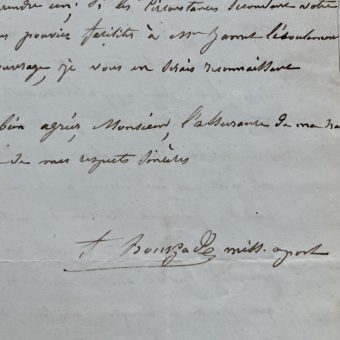 rendre un; si les circonstances secondant votre
pouviez faciliter à Mr l'écoulement
ouvrage, je vous en serais reconnaissant
agréer, Monsieur, l'assurance de ma
de mes respects sincères
miss. apost